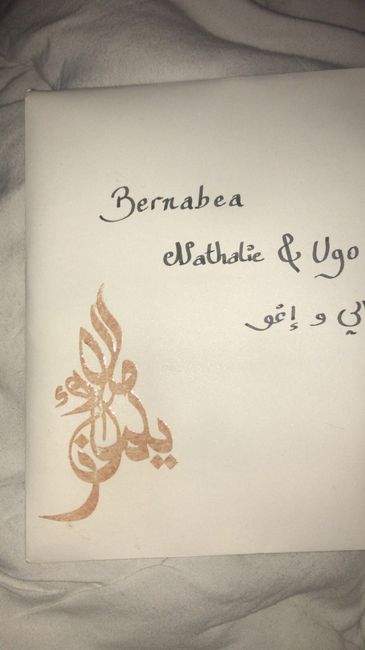 Bernabea
Nathalie & Ugo
و إغو